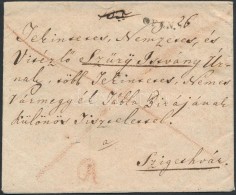 Tekintetes, Nemzetes, és
Vitézlő Szűry Istvány Úr-
nak, több Tekintetes, Nemes
Vármegyék Tábla Birájának
különös Tisztelettel.
a
Szigethvár